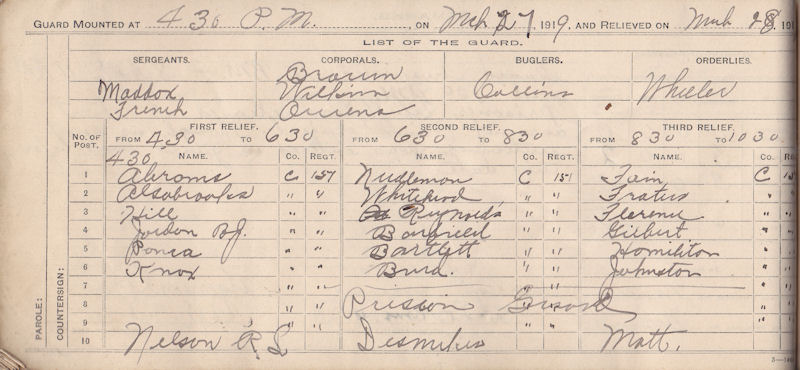 GUARD MOUNTED AT 4 30 P. M. ON Mch 27, 1919, AND RELIEVED ON Mch 28, 191
LIST OF THE GUARD.
SERGEANTS. CORPORALS. BUGLERS. ORDERLIES.
Brown
Maddox Wilkins Collins Wheeler
French Owens
No. OF POST. FIRST RELIEF. SECOND RELIEF. THIRD RELIEF.
FROM 4,30 TO 6 30 FROM 6 30 TO 8 30 FROM 8 30 TO 10 30
430 NAME. Co. REGT. NAME. Co. REGT. NAME. Co.
1 Abroms C 157 C 151 Fain C 15
2 Alsobrooks " " Whitehead " " Fratus "
3 Hill " " Reynolds " " Florence "
4 Jordon B.J. " " Barfield " " Gilbert "
5 Ponca " " Bartlett " " Homiliton "
6 Knox " " Burd. " " Johnston "
7 " " " " "
8 " " Prisson Guard
9 " "
10 Nelson R S Matt.
PAROLE:
COUNTERSIGN: